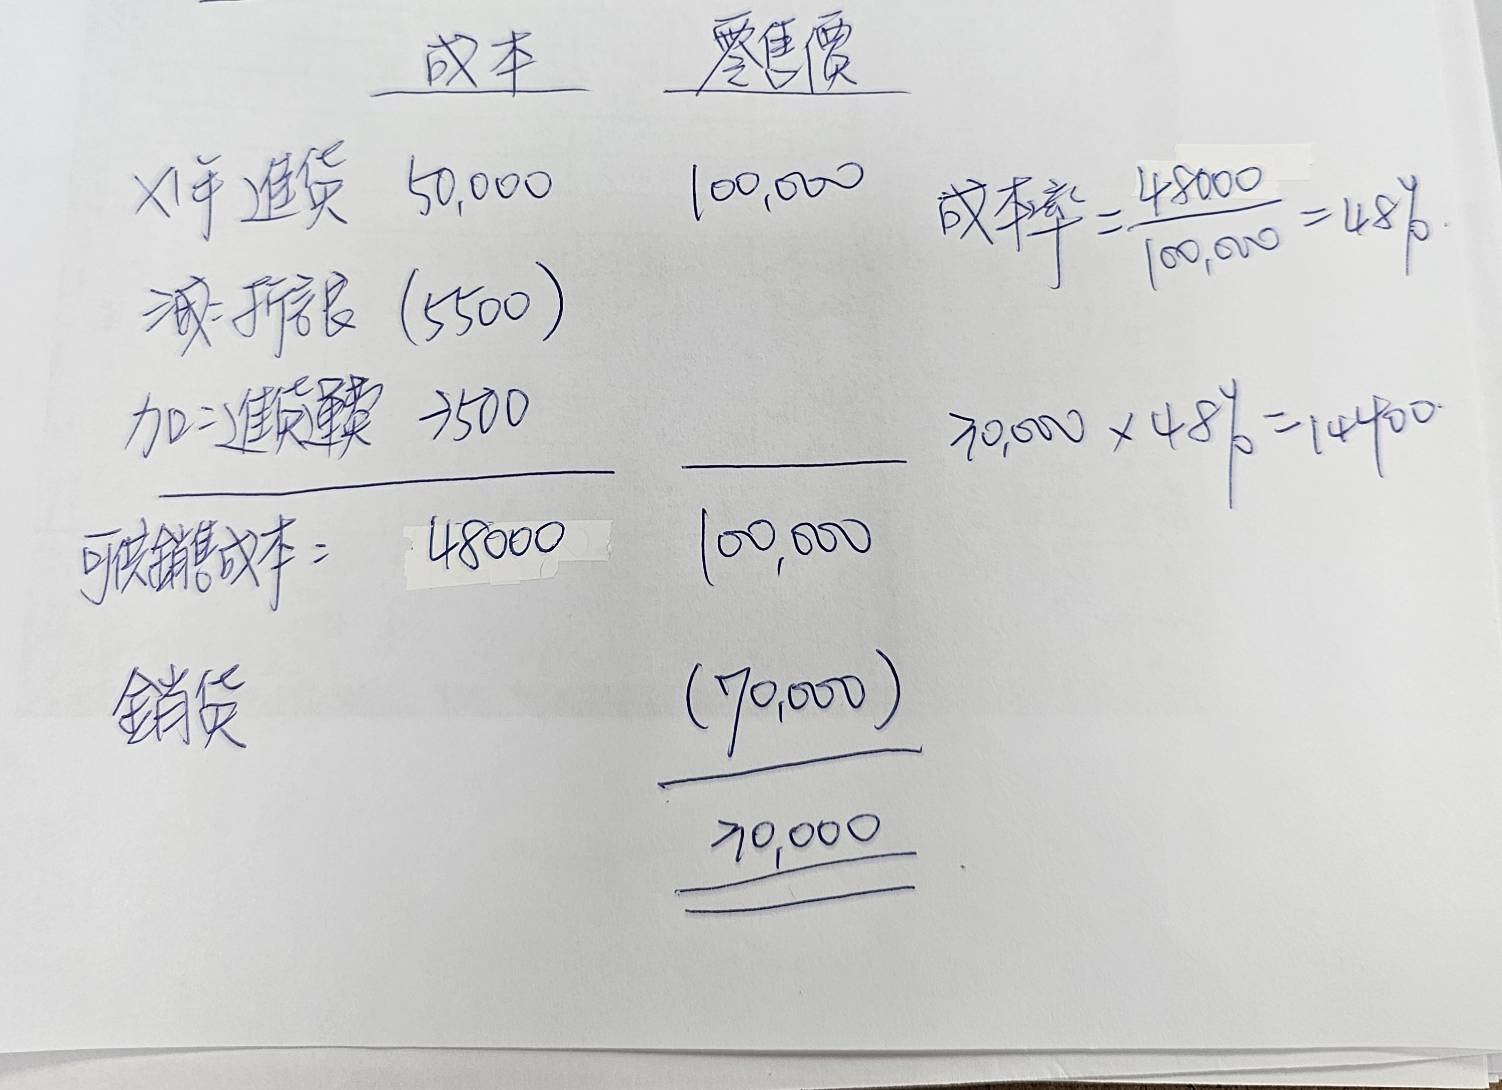 成本 零售價
X1年進貨 50,000 100,000 成本率 = 48000/100,000 = 48%
減:折讓 (5500)
加:進貨運費 3500
30,000 × 48% = 14400
可供銷售成本: 48000 100,000
銷貨 (70,000)
30,000